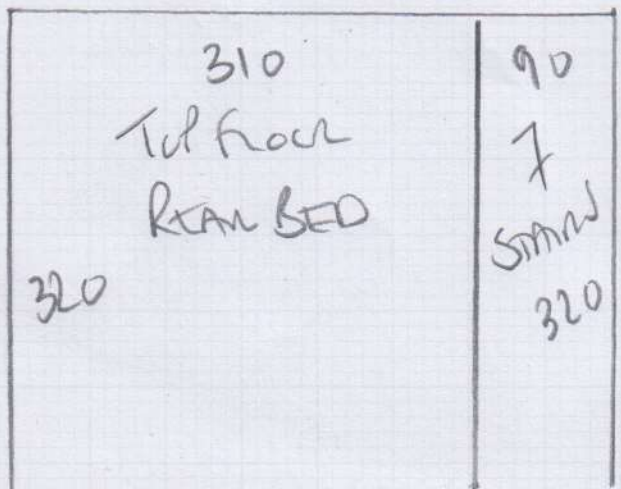 310
Top Floor
Rear Bed
320
90
7
Stairs
320